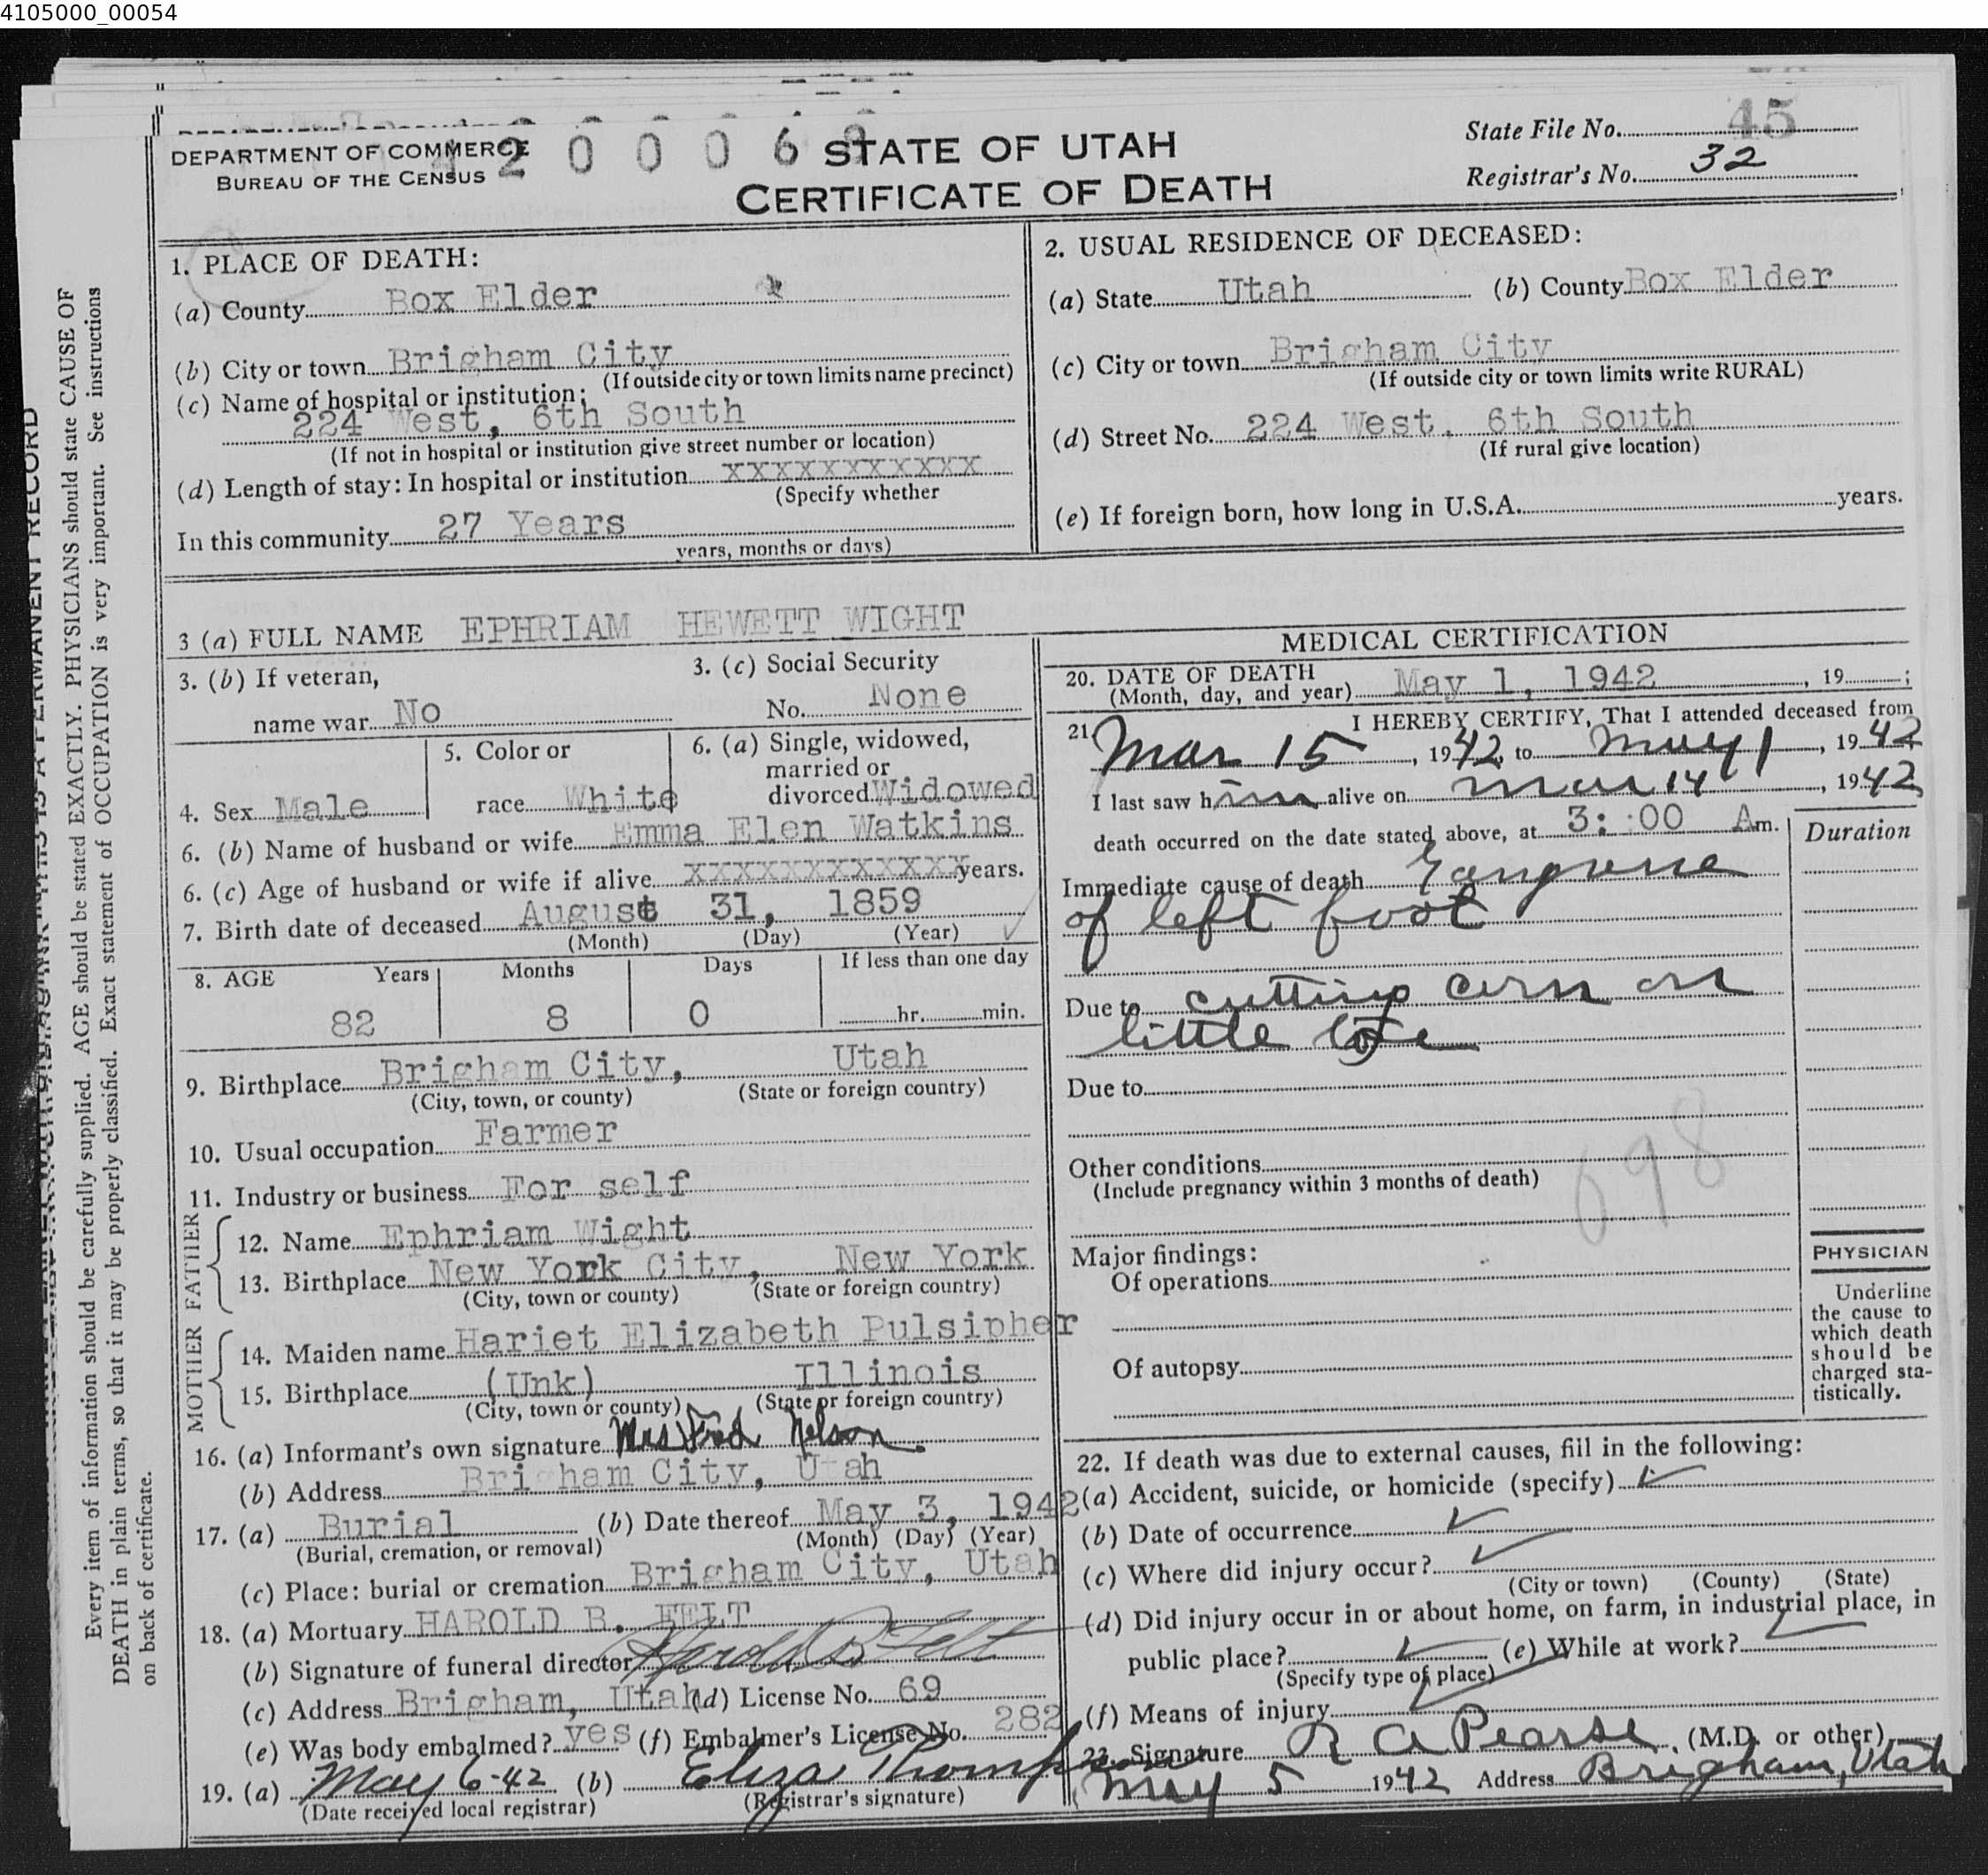 4105000_00054
DEPARTMENT OF COMMERCE
BUREAU OF THE CENSUS
4 2 0 0 0 6 9
STATE OF UTAH
CERTIFICATE OF DEATH
State File No. 45
Registrar's No. 32
1. PLACE OF DEATH:
(a) County Box Elder
(b) City or town Brigham City
(If outside city or town limits name precinct)
(c) Name of hospital or institution:
224 West, 6th South
(If not in hospital or institution give street number or location)
(d) Length of stay: In hospital or institution XXXXXXXXXXX
(Specify whether
In this community 27 Years
years, months or days)
2. USUAL RESIDENCE OF DECEASED:
(a) State Utah (b) County Box Elder
(c) City or town Brigham City
(If outside city or town limits write RURAL)
(d) Street No. 224 West, 6th South
(If rural give location)
(e) If foreign born, how long in U.S.A. years.
3 (a) FULL NAME EPHRIAM HEWETT WIGHT
3. (b) If veteran,
name war No
3. (c) Social Security
No. None
4. Sex Male
5. Color or
race White
6. (a) Single, widowed,
married or
divorced Widowed
6. (b) Name of husband or wife Emma Elen Watkins
6. (c) Age of husband or wife if alive XXXXXXXXXXXX years.
7. Birth date of deceased August 31, 1859
(Month) (Day) (Year)
8. AGE Years Months Days If less than one day
82 8 0 hr. min.
9. Birthplace Brigham City, Utah
(City, town, or county) (State or foreign country)
10. Usual occupation Farmer
11. Industry or business For self
FATHER
12. Name Ephriam Wight
13. Birthplace New York City, New York
(City, town or county) (State or foreign country)
MOTHER
14. Maiden name Hariet Elizabeth Pulsipher
15. Birthplace (Unk) Illinois
(City, town or county) (State or foreign country)
16. (a) Informant's own signature Mrs Fred Nelson
(b) Address Brigham City, Utah
17. (a) Burial (b) Date thereof May 3, 1942
(Burial, cremation, or removal) (Month) (Day) (Year)
(c) Place: burial or cremation Brigham City, Utah
18. (a) Mortuary HAROLD B. FELT
(b) Signature of funeral director Harold B Felt
(c) Address Brigham, Utah (d) License No. 69
(e) Was body embalmed? yes (f) Embalmer's License No. 282
19. (a) May 6-42 (b) Eliza Thompson
(Date received local registrar) (Registrar's signature)
MEDICAL CERTIFICATION
20. DATE OF DEATH
(Month, day, and year) May 1, 1942, 19 ;
21. I HEREBY CERTIFY, That I attended deceased from
Mar 15, 1942, to May 1, 1942
I last saw him alive on Mar 14, 1942
death occurred on the date stated above, at 3:00 Am.
Duration
Immediate cause of death Gangrene
of left foot
Due to cutting corn on
little toe
Due to
Other conditions
(Include pregnancy within 3 months of death)
698
Major findings:
Of operations
Of autopsy
PHYSICIAN
Underline
the cause to
which death
should be
charged sta-
tistically.
22. If death was due to external causes, fill in the following:
(a) Accident, suicide, or homicide (specify) ✓
(b) Date of occurrence ✓
(c) Where did injury occur? ✓
(City or town) (County) (State)
(d) Did injury occur in or about home, on farm, in industrial place, in
public place? ✓ (e) While at work? ✓
(Specify type of place)
(f) Means of injury ✓
23. Signature R A Pearse (M.D. or other)
May 5 1942 Address Brigham, Utah
Every item of information should be carefully supplied. AGE should be stated EXACTLY. PHYSICIANS should state CAUSE OF
DEATH in plain terms, so that it may be properly classified. Exact statement of OCCUPATION is very important. See instructions
on back of certificate.